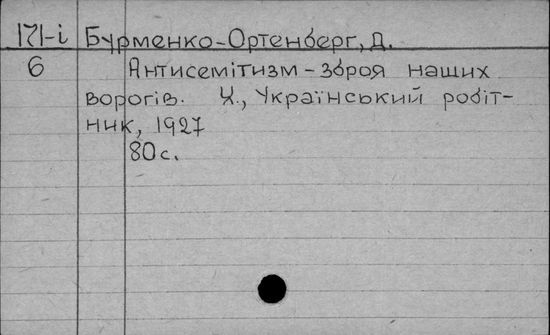 171-і Бурменко-Ортенберг, Д.
6 Антисемітизм – зброя наших
ворогів. Х., Український робіт-
ник, 1927
80 с.